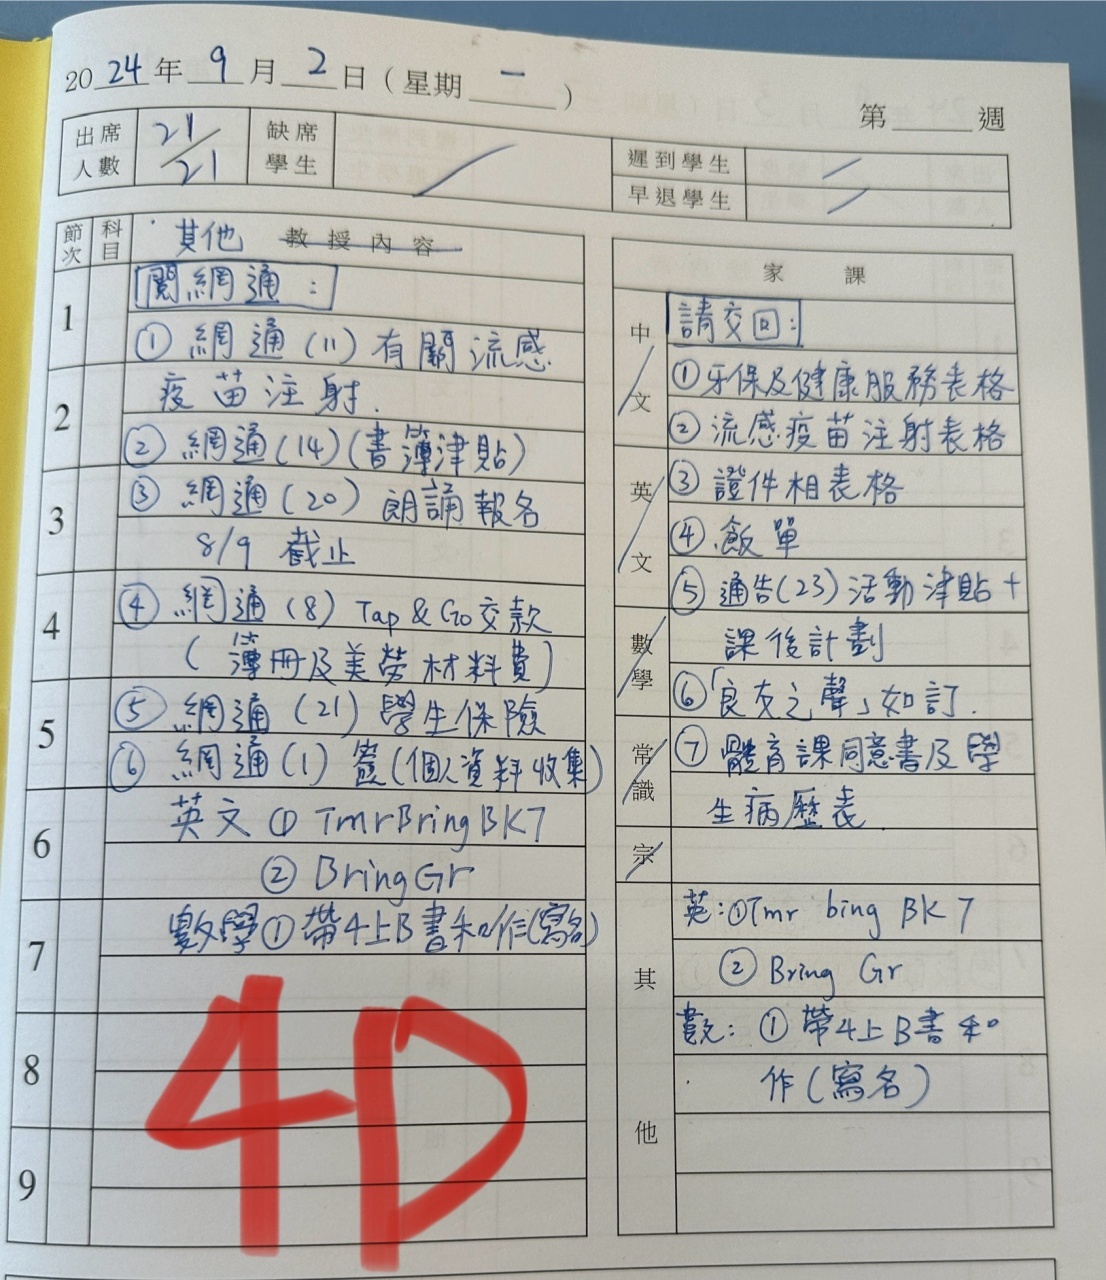 2024年9月2日(星期一)
第 週
出席人數 21/21 缺席學生
遲到學生
早退學生
節次 科目 其他 教授內容
1 閱網通:
①網通(11)有關流感
2 疫苗注射.
②網通(14)(書簿津貼)
3 ③網通(20)朗誦報名
8/9 截止
4 ④網通(8) Tap & Go交款
(簿冊及美勞材料費)
5 ⑤網通(21)學生保險
⑥網通(1)簽(個人資料收集)
6 英文①TmrBringBK7
②BringGr
7 數學①帶4上B書和作(寫名)
8
9
4D
家課
中文 請交回:
①牙保及健康服務表格
②流感疫苗注射表格
英文 ③證件相表格
④飯單
⑤通告(23)活動津貼+
數學 課後計劃
⑥「良友之聲」如訂.
常識 ⑦體育課同意書及學
生病歷表
宗
其他 英:①Tmr bing BK7
②Bring Gr
數:①帶4上B書和
作(寫名)